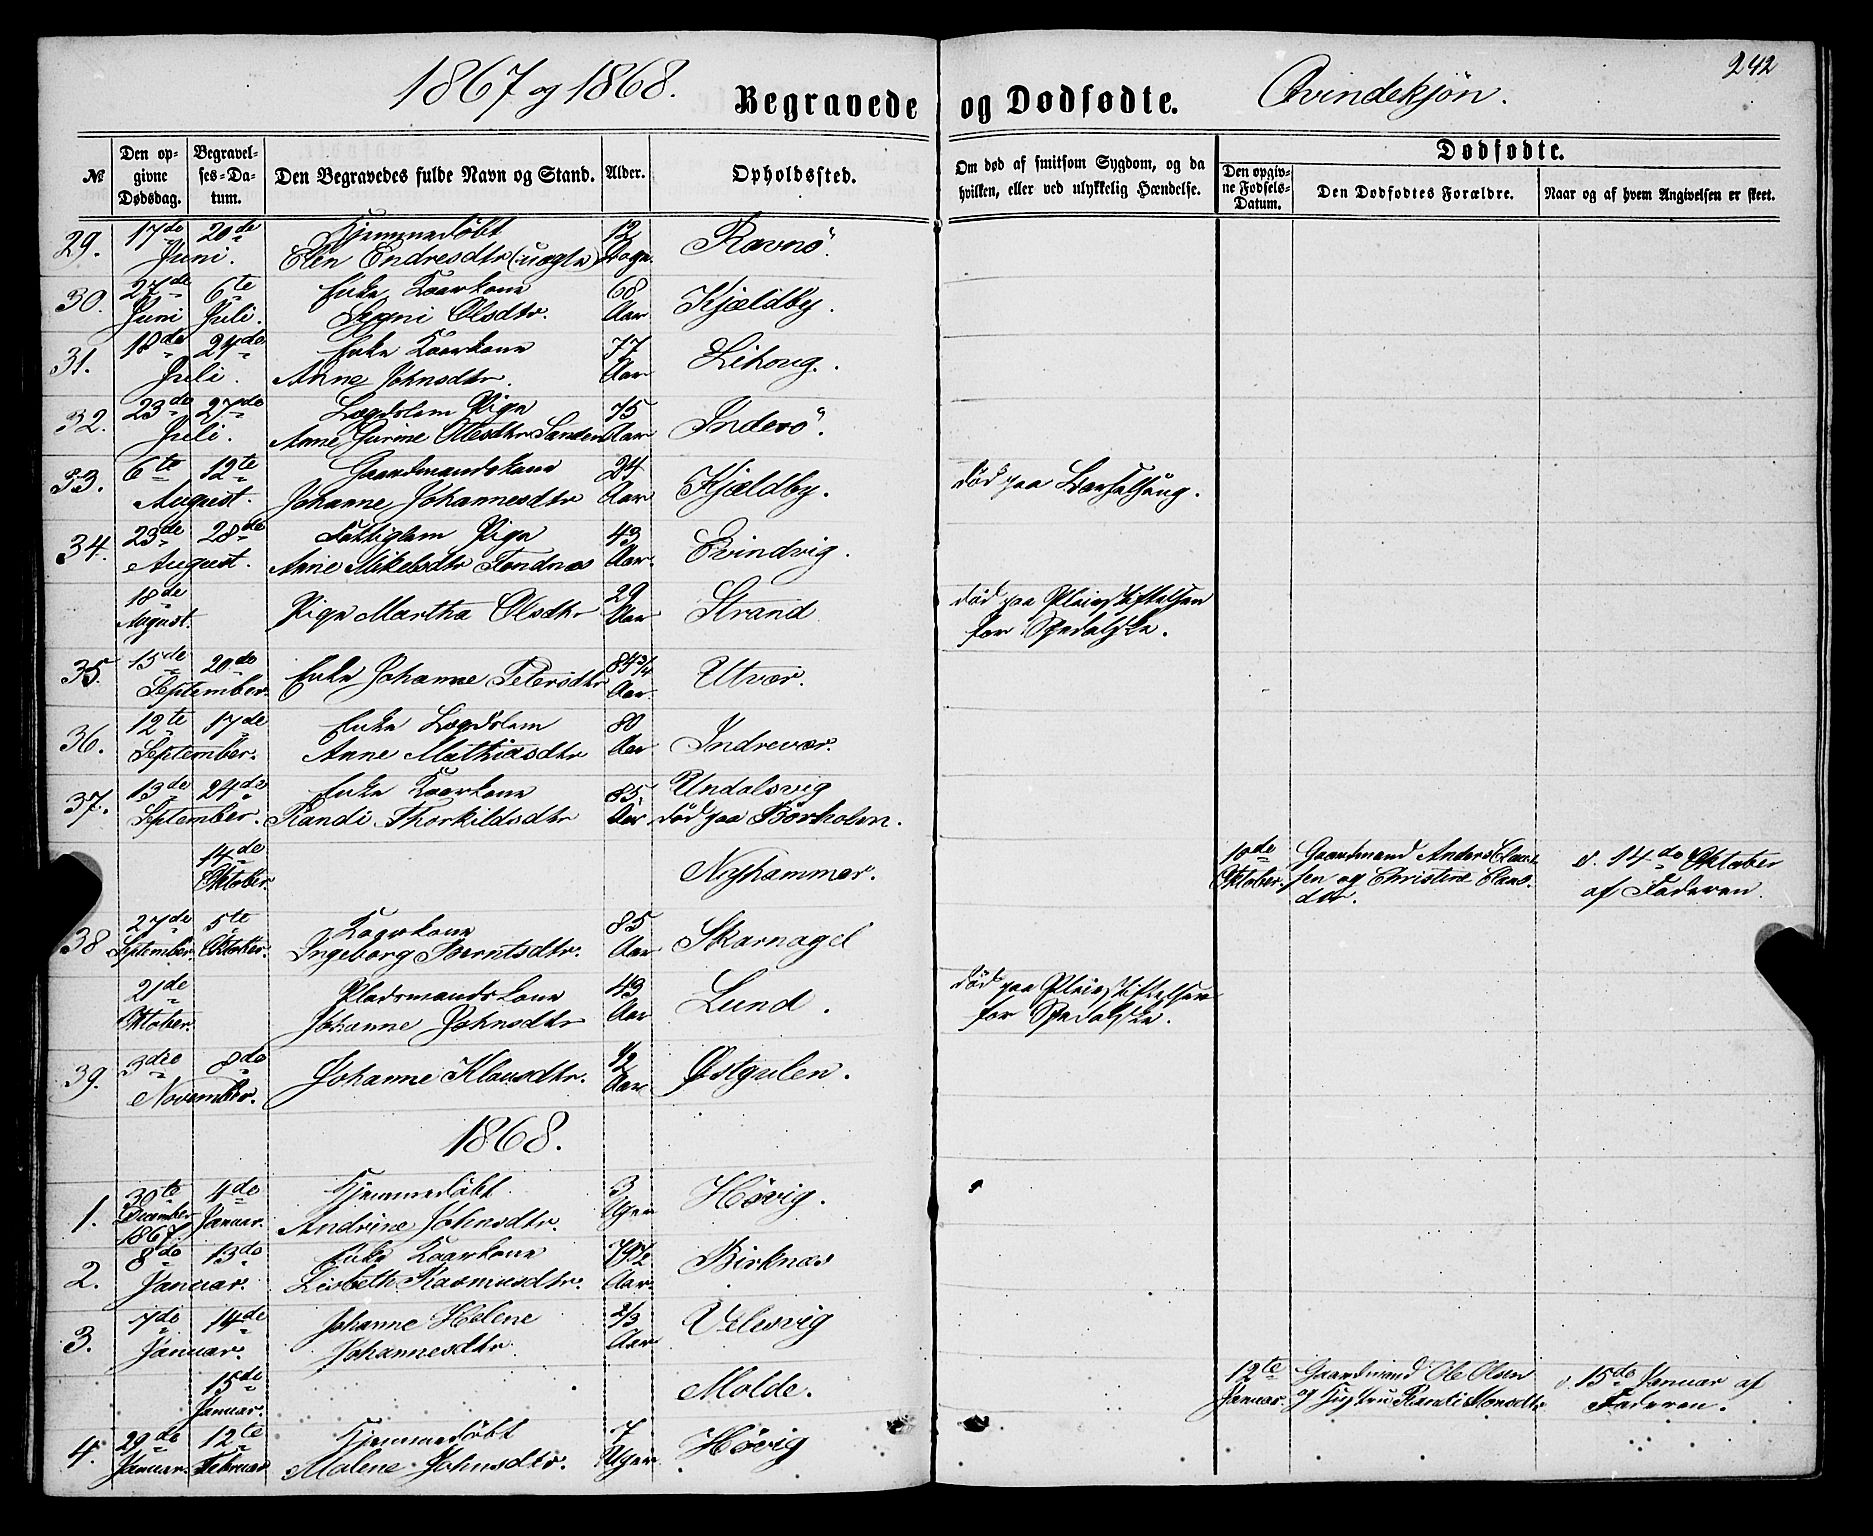 242
1867 og 1868.
Begravede og Dødfødte.
Qvindekjøn.
№
Den opgivne Dødsdag.
Begravelses-Datum.
Den Begravedes fulde Navn og Stand.
Alder.
Opholdssted.
Om død af smitsom Sygdom, og da hvilken, eller ved ulykkelig Hændelse.
Dødfødte.
Den opgivne Fødsels-Datum.
Den Dødfødtes Forældre.
Naar og af hvem Angivelsen er skeet.
29. 17de 20de Hjemmedøbt 12
Juni. Elen Endresdtr (uægte) Dage. Ravnø.
30. 27de 6te Enke Kaarkone 68
Juni Juli. Olsdtr. Aar Kjeldby.
31. 18de 24de Enke Kaarkone 77
Juli. Anne Johnsdtr. Aar Lihoug.
32. 23de 27de Lægdslem Pige 75
Juli. Anne Gurine Olesdtr Sanden Aar Inderø.
33. 6te 12te Gaardmandskone 24
August. Johanne Johannesdtr Aar Kjeldby. død paa Barselseng.
34. 23de 28de Fattiglem Pige 43
August. Anne Mikelsdtr Tondnæs Aar. Evindvig.
18de 29
August. Pige Martha Olsdtr Aar Strand død paa Pleiestiftelsen
for Spedalske.
35. 15de 20de 85 3/4
September. Enke Johanne Petersdtr Aar. Utvær.
36. 12te 17de Enke Lægdslem 80
September. Anne Mathiasdtr Aar Indrevær.
37. 13de 24de Enke Kaarkone 85 Undalsvig
September. Randi Thorkildsdtr Aar død paa Borholm.
14de
Oktober. Nyhammer. 10de Oktober. Gaardmand Anders
sen og Christine
dtr. d. 14de Oktober
af Faderen.
38 27de 5te Kaarkone 85
September. Oktober. Ingeborg Berntsdtr. Aar Skarnagel
21de Pladsmandskone 43
Oktober. Johanne Johnsdtr Aar Lund. død paa Pleiestiftelsen
for Spedalske.
39. 3die 8de
November. Johanne Klausdtr. Aar Østgulen.
1868.
1. 30te 4de Hjemmedøbt 3
December 1867 Januar. Andrine Johnsdtr. Uger Høvig.
2. 8de 13de Enke Kaarkone 79 1/2
Januar. Lisbeth Rasmusdtr. Aar. Birknæs
3. 7de 14de Johanne Helene 2/3
Januar. Johannesdtr. Aar Velsvig
15de
Januar. Molde. 12te Januar. Gaardmand Ole Olsen
og Hustru Monsdtr d. 15de Januar af
Faderen.
4. 29de 12te Hjemmedøbt 7
Januar. Februar Malene Johnsdtr. Uger. Høvig